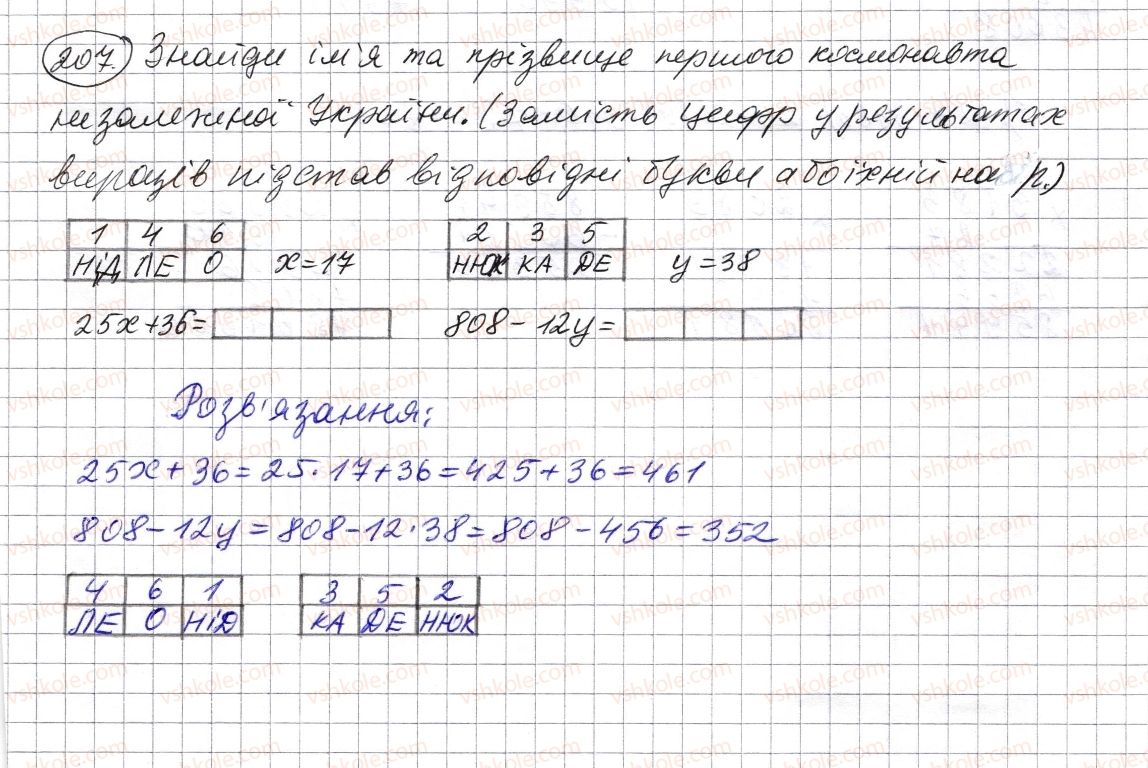 207. Знайди ім'я та прізвище першого космонавта
незалежної України. (Замість цифр у результатах
виразів підстав відповідні букви або їхній на р.)
1 4 6 2 3 5
НІД ЛЕ О x=17 НЮК КА ДЕ y=38
25x+36= 808-12y=
Розв'язання:
25x+36=25·17+36=425+36=461
808-12y=808-12·38=808-456=352
4 6 1 3 5 2
ЛЕ О НІД КА ДЕ НЮК